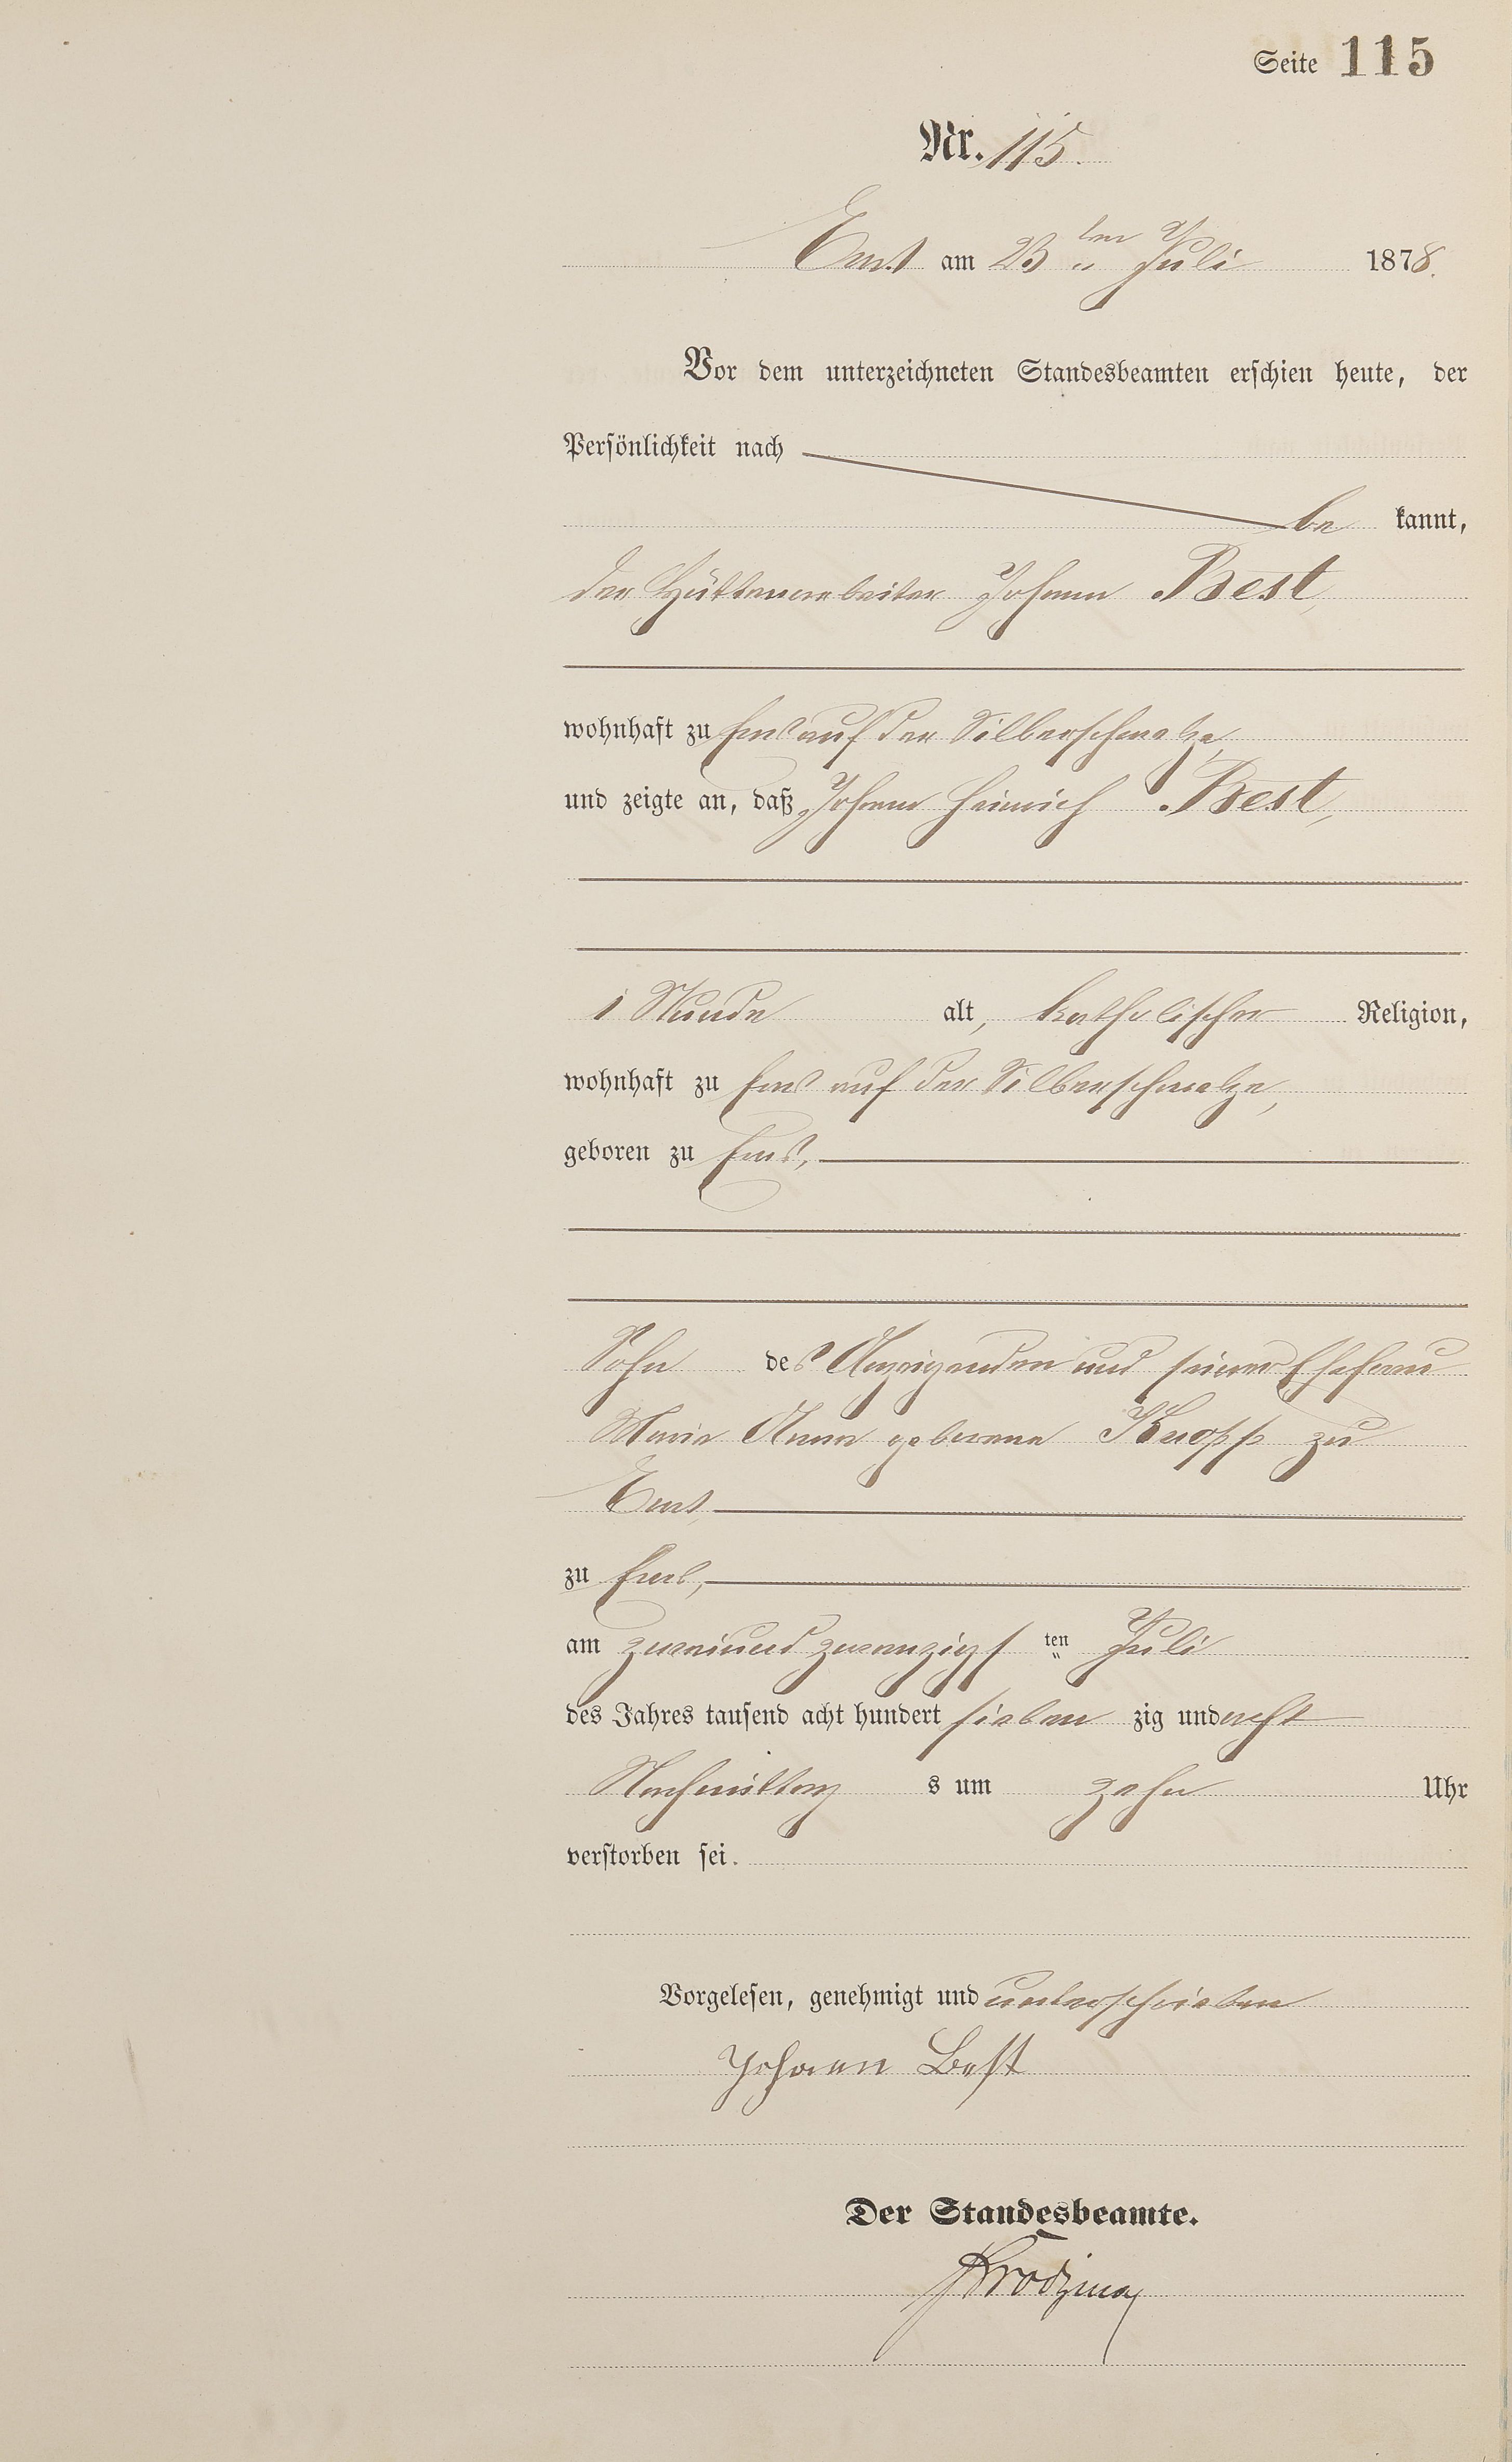 Seite 115
Nr. 115.
Ems am 23 ten Juli 1878.
Vor dem unterzeichneten Standesbeamten erschien heute, der
Persönlichkeit nach
be kannt,
der Hüttenarbeiter Johann Best,
wohnhaft zu Ems auf der Silberschmelze,
und zeigte an, daß Johann Heinrich Best,
1 Stunde alt, katholischer Religion,
wohnhaft zu Ems auf der Silberschmelze,
geboren zu Ems,
Sohn des Anzeigenden und seiner Ehefrau
Maria Anna geborene Knopp zu
Ems,
zu Ems,
am zweiundzwanzigs ten Juli
des Jahres tausend acht hundert sieben zig und acht
Nachmittag s um zehn Uhr
verstorben sei.
Vorgelesen, genehmigt und unterschrieben
Johann Best
Der Standesbeamte.